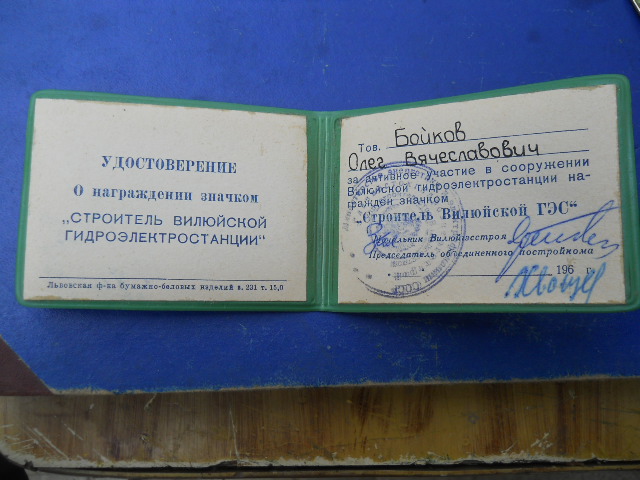 УДОСТОВЕРЕНИЕ
О награждении значком
„СТРОИТЕЛЬ ВИЛЮЙСКОЙ
ГИДРОЭЛЕКТРОСТАНЦИИ“
Львовская ф-ка бумажно-беловых изделий з. 231 т. 15,0
Тов. Бойков
Олег Вячеславович
за активное участие в сооружении
Вилюйской гидроэлектростанции на-
гражден значком
„Строитель Вилюйской ГЭС“
Начальник Вилюйгэсстроя
Председатель объединенного постройкома
196 г.
СССР